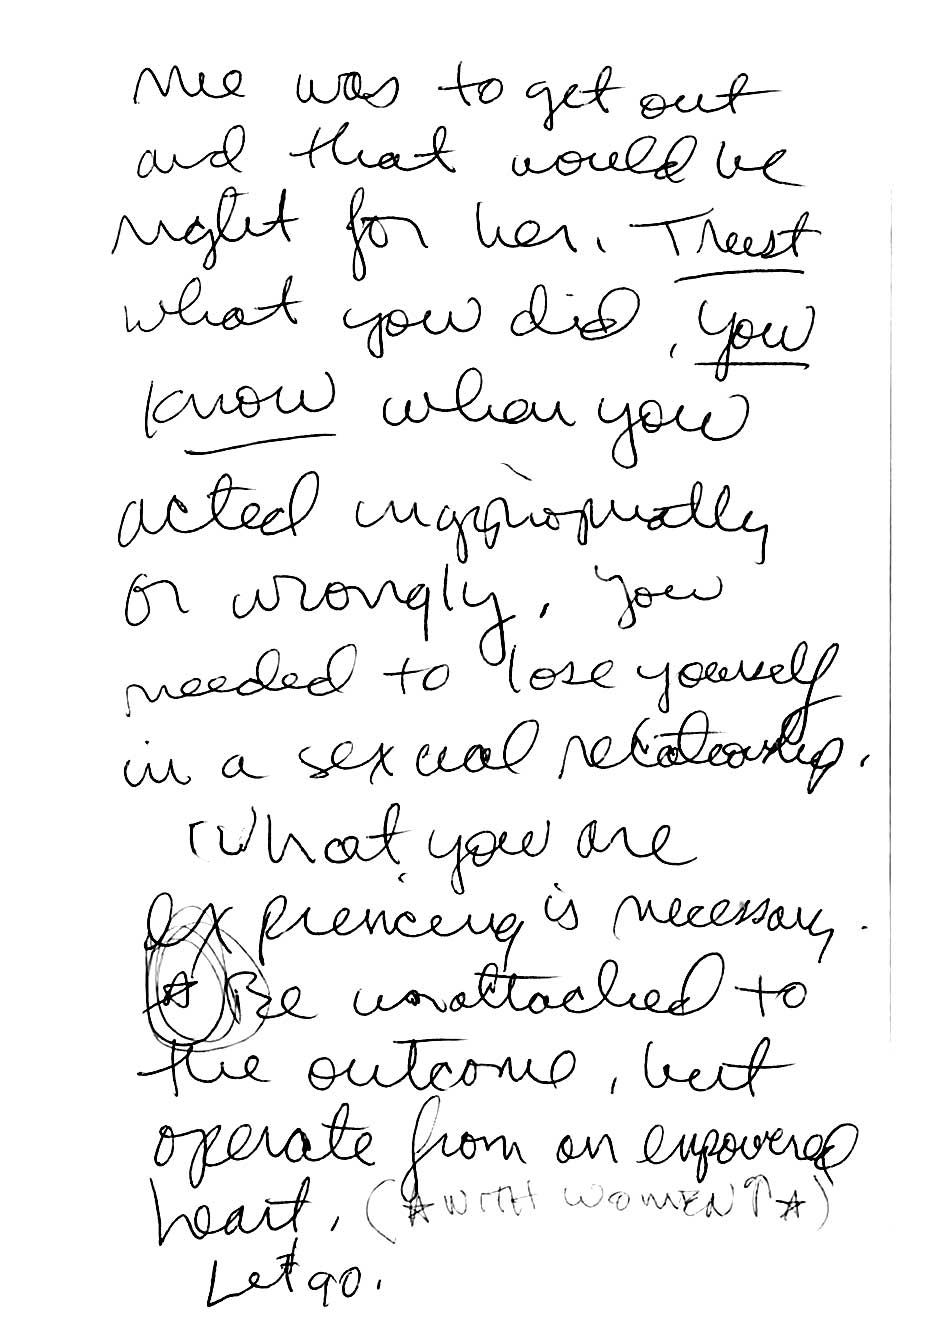 me was to get out
and that would be
right for her. Trust
what you did, you
know when you
acted inappropriately
or wrongly, you
needed to lose yourself
in a sexual relationship.
What you are
experiencing is necessary.
☆ Be unattached to
the outcome, but
operate from an empowered
heart. (☆ WITH WOMEN ↑ ☆)
Let go.